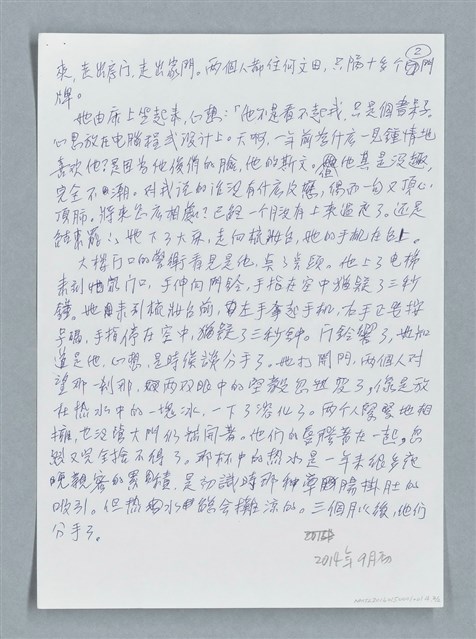 2
來,走出房门,走出家門。两個人都住何文田,只隔十多个門
牌。
她由床上坐起来,心想:「他不是看不起我,只是個書呆子,
心思放在电腦程式设计上。天啊,一年前為什么一見鍾情地
喜欢他?是因為他俊俏的臉,他的斯文。但他真是沒趣,
完全不潮。对我说的话沒有什么反應,偶而一句又頂心
頂肺。將来怎么相處?已經一个月没有上来過夜了。还是
結束罷!」她下了大床,走向梳妝台,她的手机在台上。
大樓门口的警衛看見是他,點了点頭。他上了电梯
来到她家门口,手伸向門鈴,手指在空中猶疑了三秒
鐘。她来到梳妝台前,左手拿起手机,右手正要按
号碼,手指停在空中,猶疑了三秒钟。门鈴響了,她知
道是他,心想,是時候談分手了。她打開門,两個人对
望那一刹那,两双眼中的空殼忽然变了,像是放
在热水中的一塊冰,一下子溶化了。两个人緊緊地相
擁,也没管大門仍然開著。他們的愛騰著在一起,忽
然又完全捨不得了。那杯中的热水是一年来很多夜
晚親密的累積,是初識時那种牽腸掛肚的
吸引。但热水總会攤涼的。三個月以後,他们
分手了。
2014年9月初